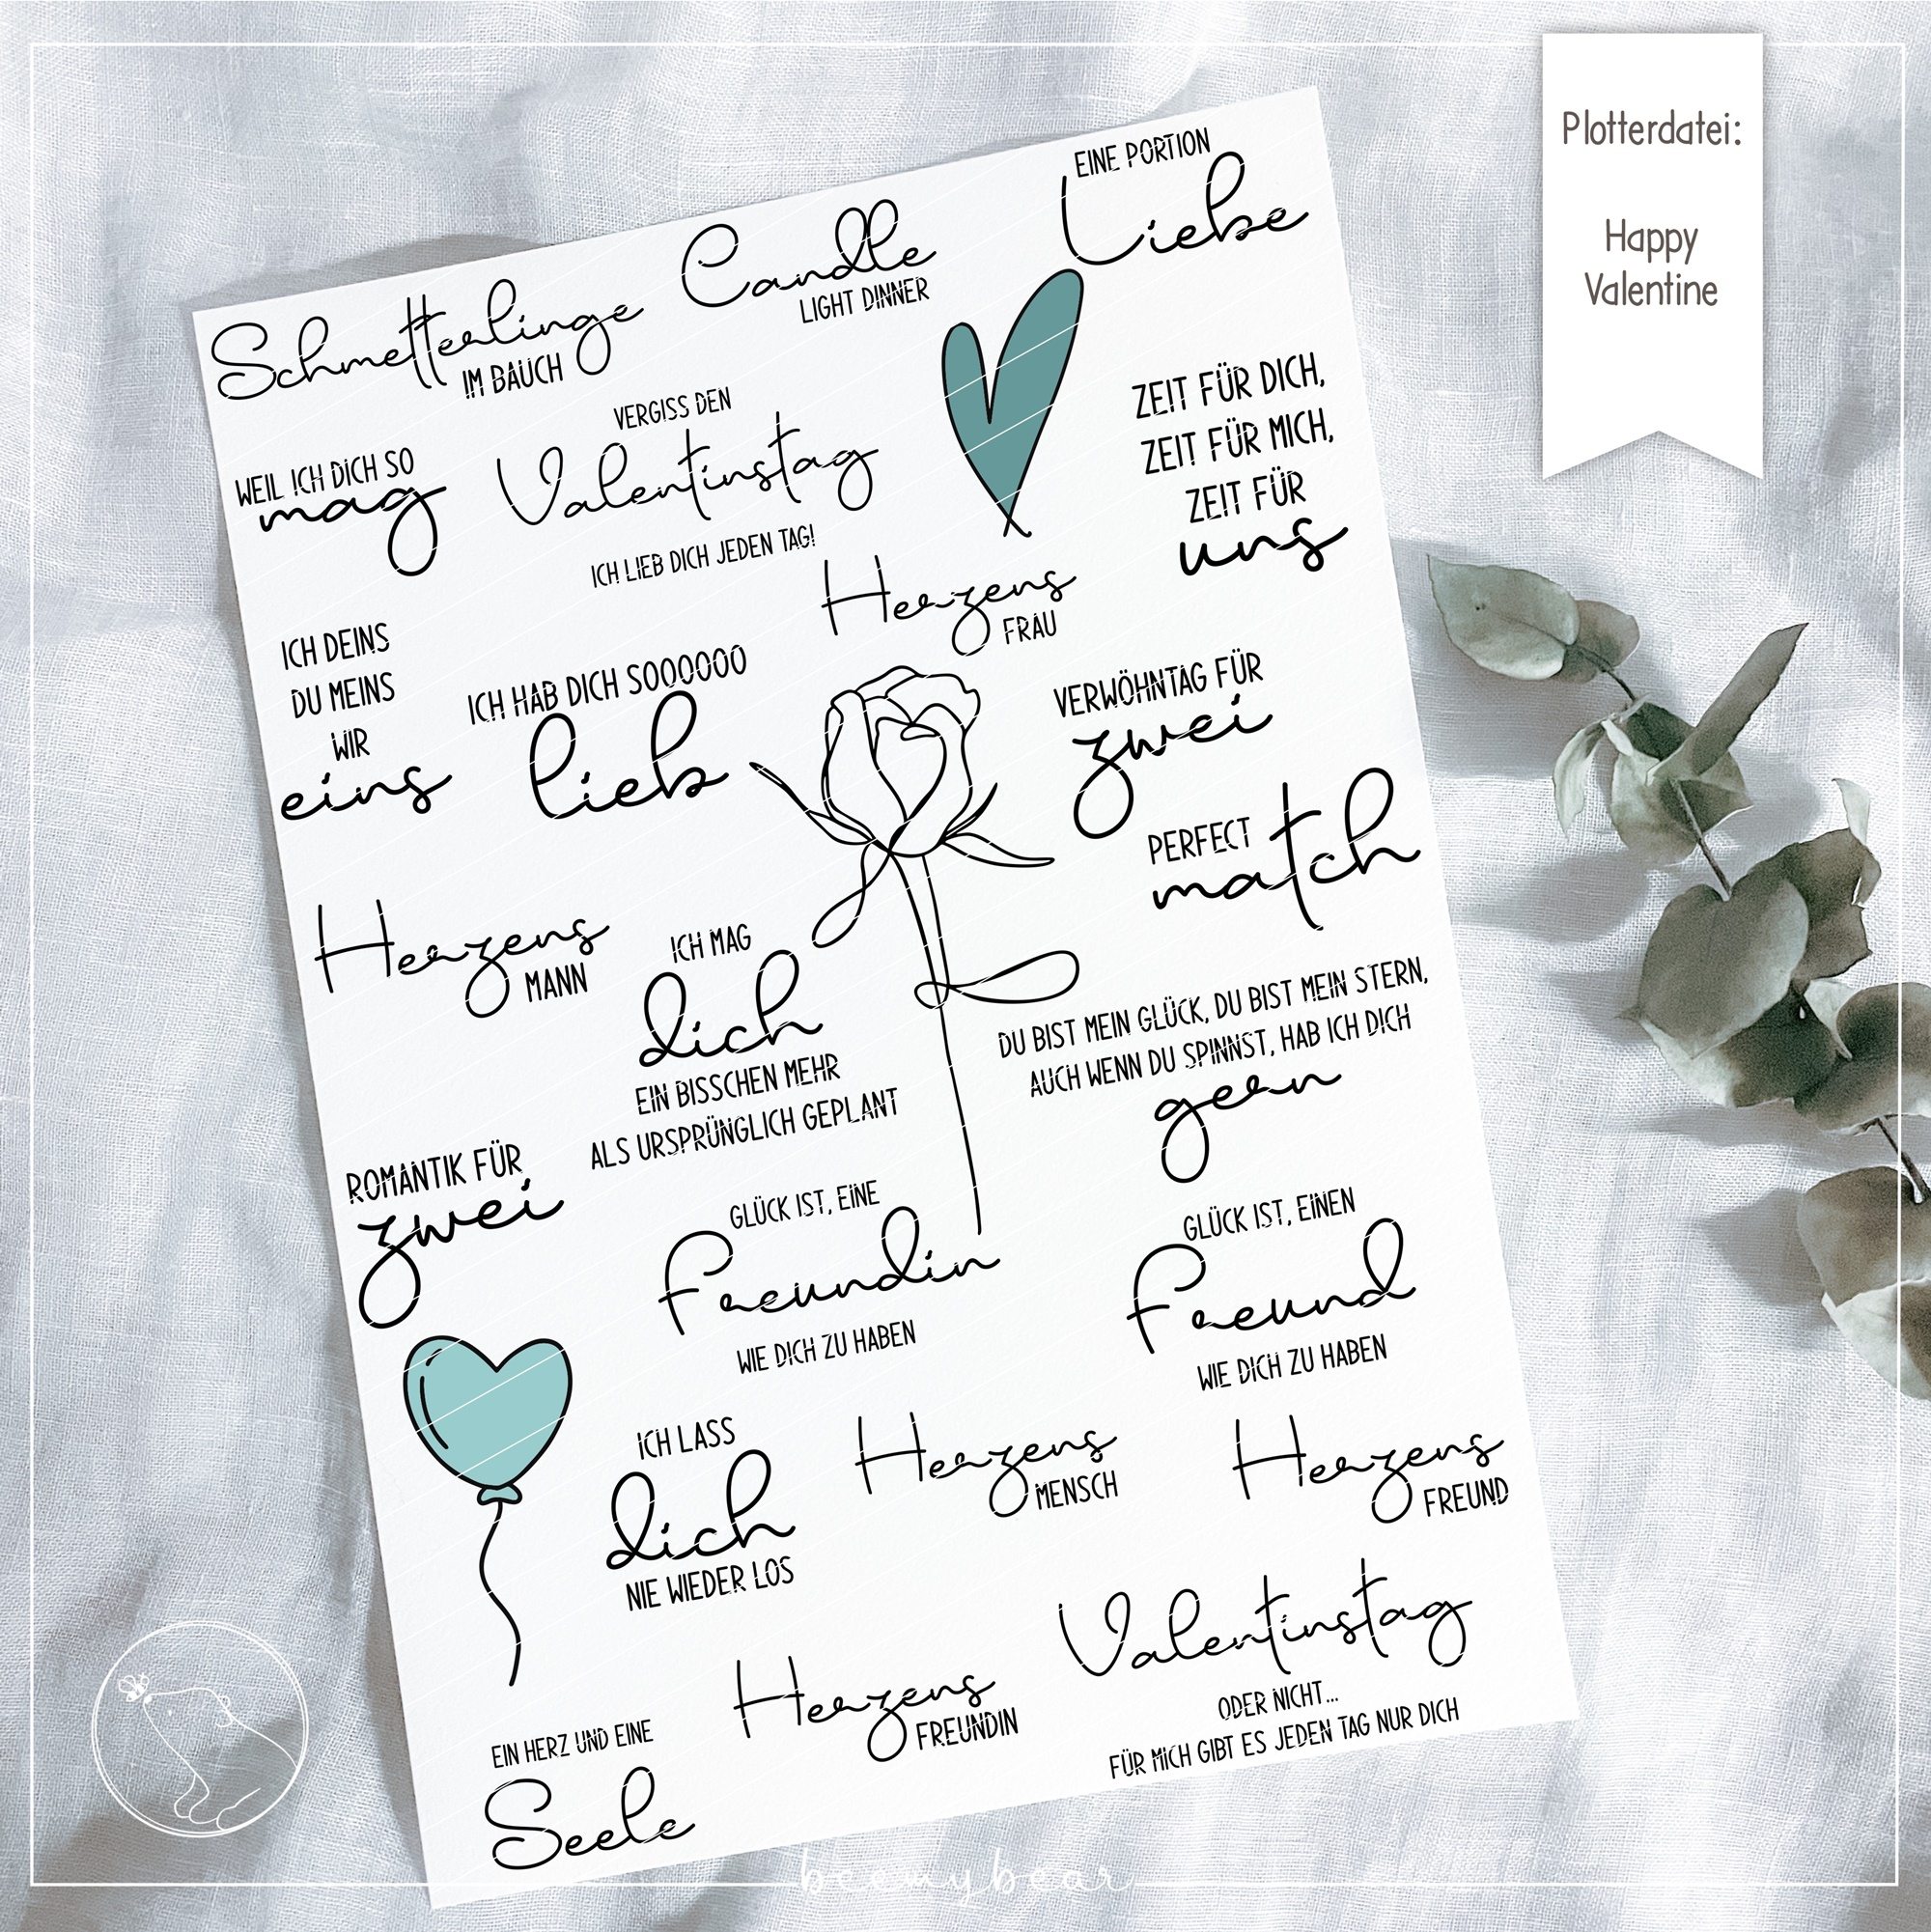 Plotterdatei:
Happy
Valentine
EINE PORTION
Liebe
Schmetterlinge
IM BAUCH
Candle
LIGHT DINNER
VERGISS DEN
Valentinstag
ICH LIEB DICH JEDEN TAG!
WEIL ICH DICH SO
mag
ZEIT FÜR DICH,
ZEIT FÜR MICH,
ZEIT FÜR
uns
Herzens
FRAU
ICH DEINS
DU MEINS
WIR
eins
ICH HAB DICH SOOOOOO
lieb
VERWÖHNTAG FÜR
zwei
PERFECT
match
Herzens
MANN
ICH MAG
dich
EIN BISSCHEN MEHR
ALS URSPRÜNGLICH GEPLANT
DU BIST MEIN GLÜCK, DU BIST MEIN STERN,
AUCH WENN DU SPINNST, HAB ICH DICH
gern
ROMANTIK FÜR
zwei
GLÜCK IST, EINE
Freundin
WIE DICH ZU HABEN
GLÜCK IST, EINEN
Freund
WIE DICH ZU HABEN
ICH LASS
dich
NIE WIEDER LOS
Herzens
MENSCH
Herzens
FREUND
Herzens
FREUNDIN
Valentinstag
ODER NICHT...
FÜR MICH GIBT ES JEDEN TAG NUR DICH
EIN HERZ UND EINE
Seele
beemybear